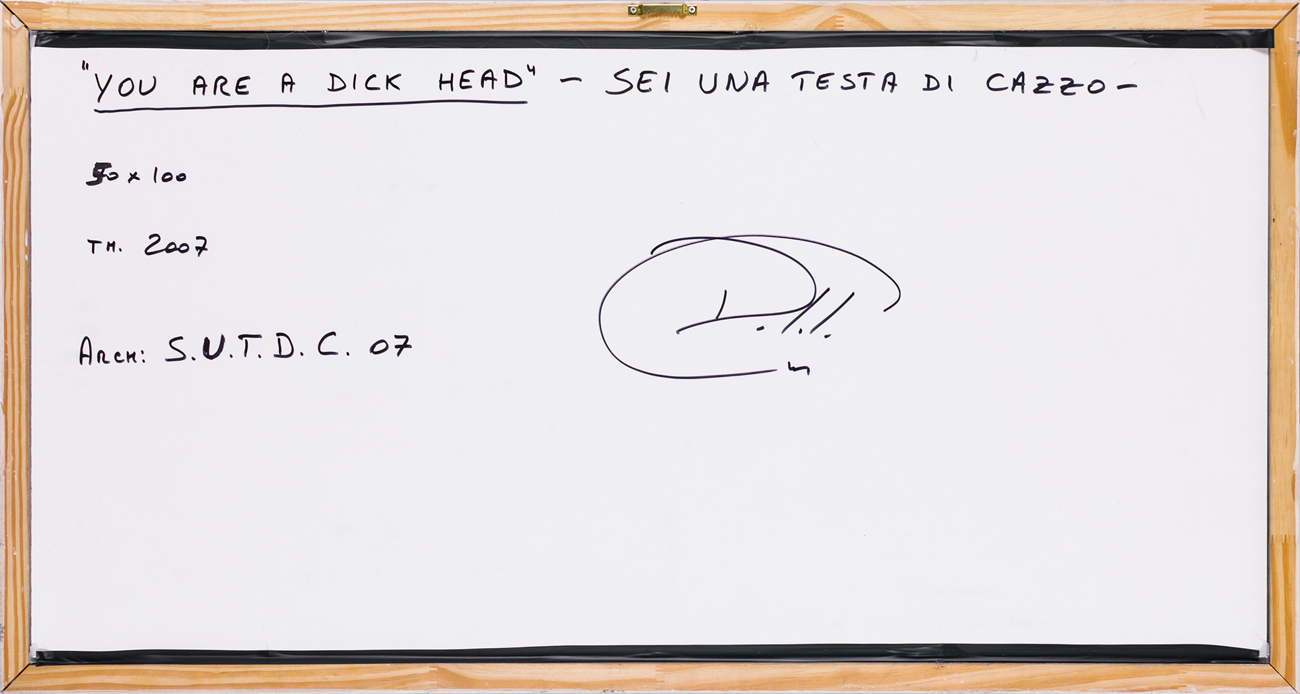 "YOU ARE A DICK HEAD" – SEI UNA TESTA DI CAZZO –
50 x 100
TM. 2007
ARCH: S.U.T.D.C. 07